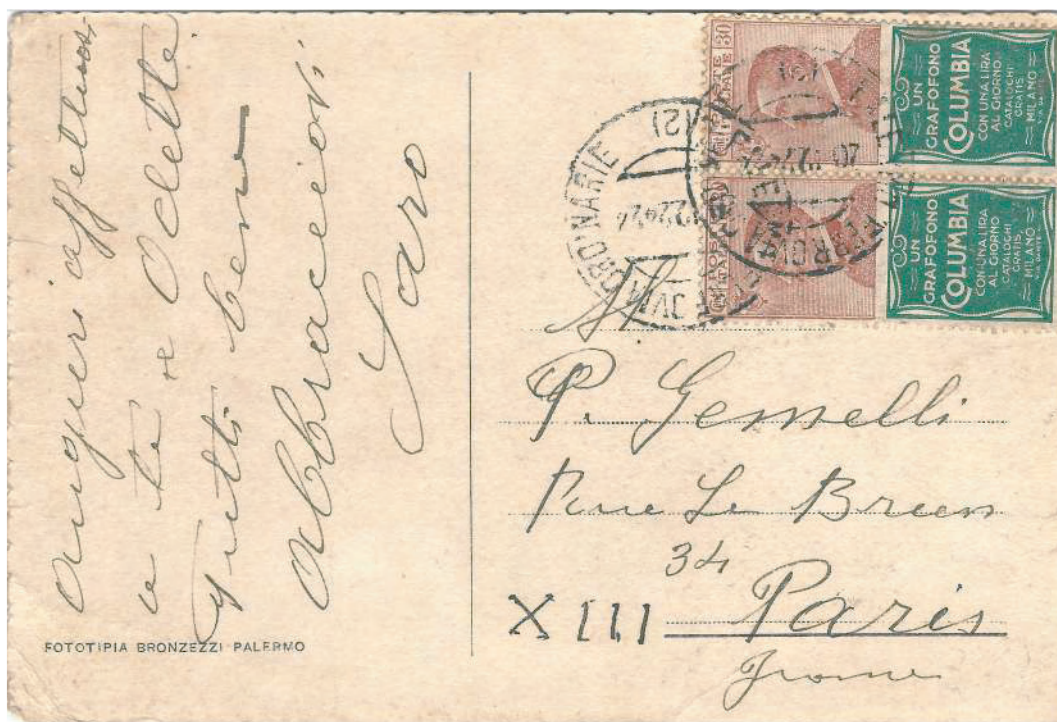 auguri affettuosi
a te e Odette
Tutti bene
Abbraccioni
Saro
FOTOTIPIA BRONZEZZI PALERMO
30
UN
GRAFOFONO
COLUMBIA
CON UNA LIRA
AL GIORNO
CATALOGHI
GRATIS
MILANO
VIA DANTE
UN
GRAFOFONO
COLUMBIA
CON UNA LIRA
AL GIORNO
CATALOGHI
GRATIS
MILANO
VIA DANTE
ORDINARIE
(12)
FERROVIA
P. Gemelli
Rue Le Brun
34
XIII Paris